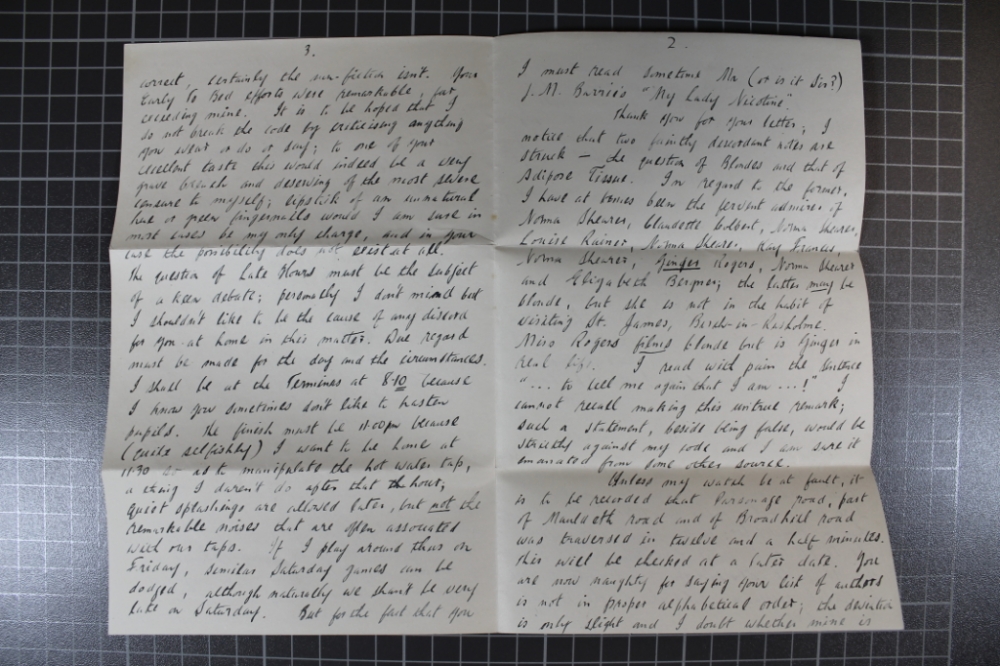 2.
I must read sometime Mr (or is it Sir?)
J. M. Barrie's "My Lady Nicotine".
Thank you for your letter; I
notice that two faintly discordant notes are
struck — the question of Blondes and that of
Adipose Tissue. In regard to the former,
I have at times been the fervent admirer of
Norma Shearer, Claudette Colbert, Norma Shearer,
Louise Rainer, Norma Shearer, Kay Francis,
Norma Shearer, Ginger Rogers, Norma Shearer
and Elizabeth Bergner; the latter may be
blonde, but she is not in the habit of
visiting St. James, Birch-in-Rusholme.
Miss Rogers films blonde but is ginger in
real life. I read with pain the sentence
"... to tell me again that I am ...!" I
cannot recall making this untrue remark;
such a statement, beside being false, would be
strictly against my code and I am sure it
emanated from some other source.
Unless my watch be at fault, it
is to be recorded that Parsonage road, part
of Mauldeth road and of Broadhill road
was traversed in twelve and a half minutes.
this will be checked at a later date. You
are now naughty for saying your list of authors
is not in proper alphabetical order; the deviation
is only slight and I doubt whether mine is
3.
correct, certainly the non-fiction isn't. Your
Early to Bed efforts were remarkable, far
exceeding mine. It is to be hoped that I
do not break the code by criticising anything
you wear or do or say; to one of your
excellent taste this would indeed be a very
grave breach and deserving of the most severe
censure to myself; lipstick of an unnatural
hue or green fingernails would I am sure in
most cases be my only charge, and in your
case the possibility does not exist at all.
The question of Late Hours must be the subject
of a keen debate; personally I don't mind but
I shouldn't like to be the cause of any discord
for you at home in this matter. Due regard
must be made for the day and the circumstances.
I shall be at the Terminus at 8-10 because
I know you sometimes don't like to hasten
pupils. The finish must be 11-00pm because
(quite selfishly) I want to be home at
11-30 so as to manipulate the hot water tap,
a thing I daren't do after that hour;
quiet splashings are allowed later, but not the
remarkable noises that are often associated
with our taps. If I play around thus on
Friday, similar Saturday games can be
dodged, although naturally we shan't be very
late on Saturday. But for the fact that you